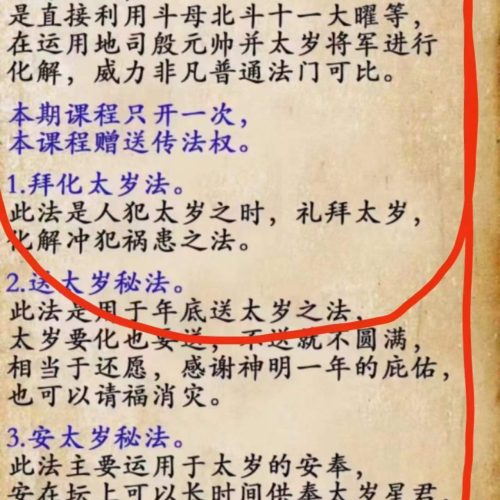 是直接利用斗母北斗十一大曜等，
在运用地司殷元帅并太岁将军进行
化解，威力非凡普通法门可比。
本期课程只开一次，
本课程赠送传法权。
1.拜化太岁法。
此法是人犯太岁之时，礼拜太岁，
化解冲犯祸患之法。
2.送太岁秘法。
此法是用于年底送太岁之法，
太岁要化也要送，不送就不圆满，
相当于还愿，感谢神明一年的庇佑，
也可以请福消灾。
3.安太岁秘法。
此法主要运用于太岁的安奉，
安在坛上可以长时间供奉太岁星君